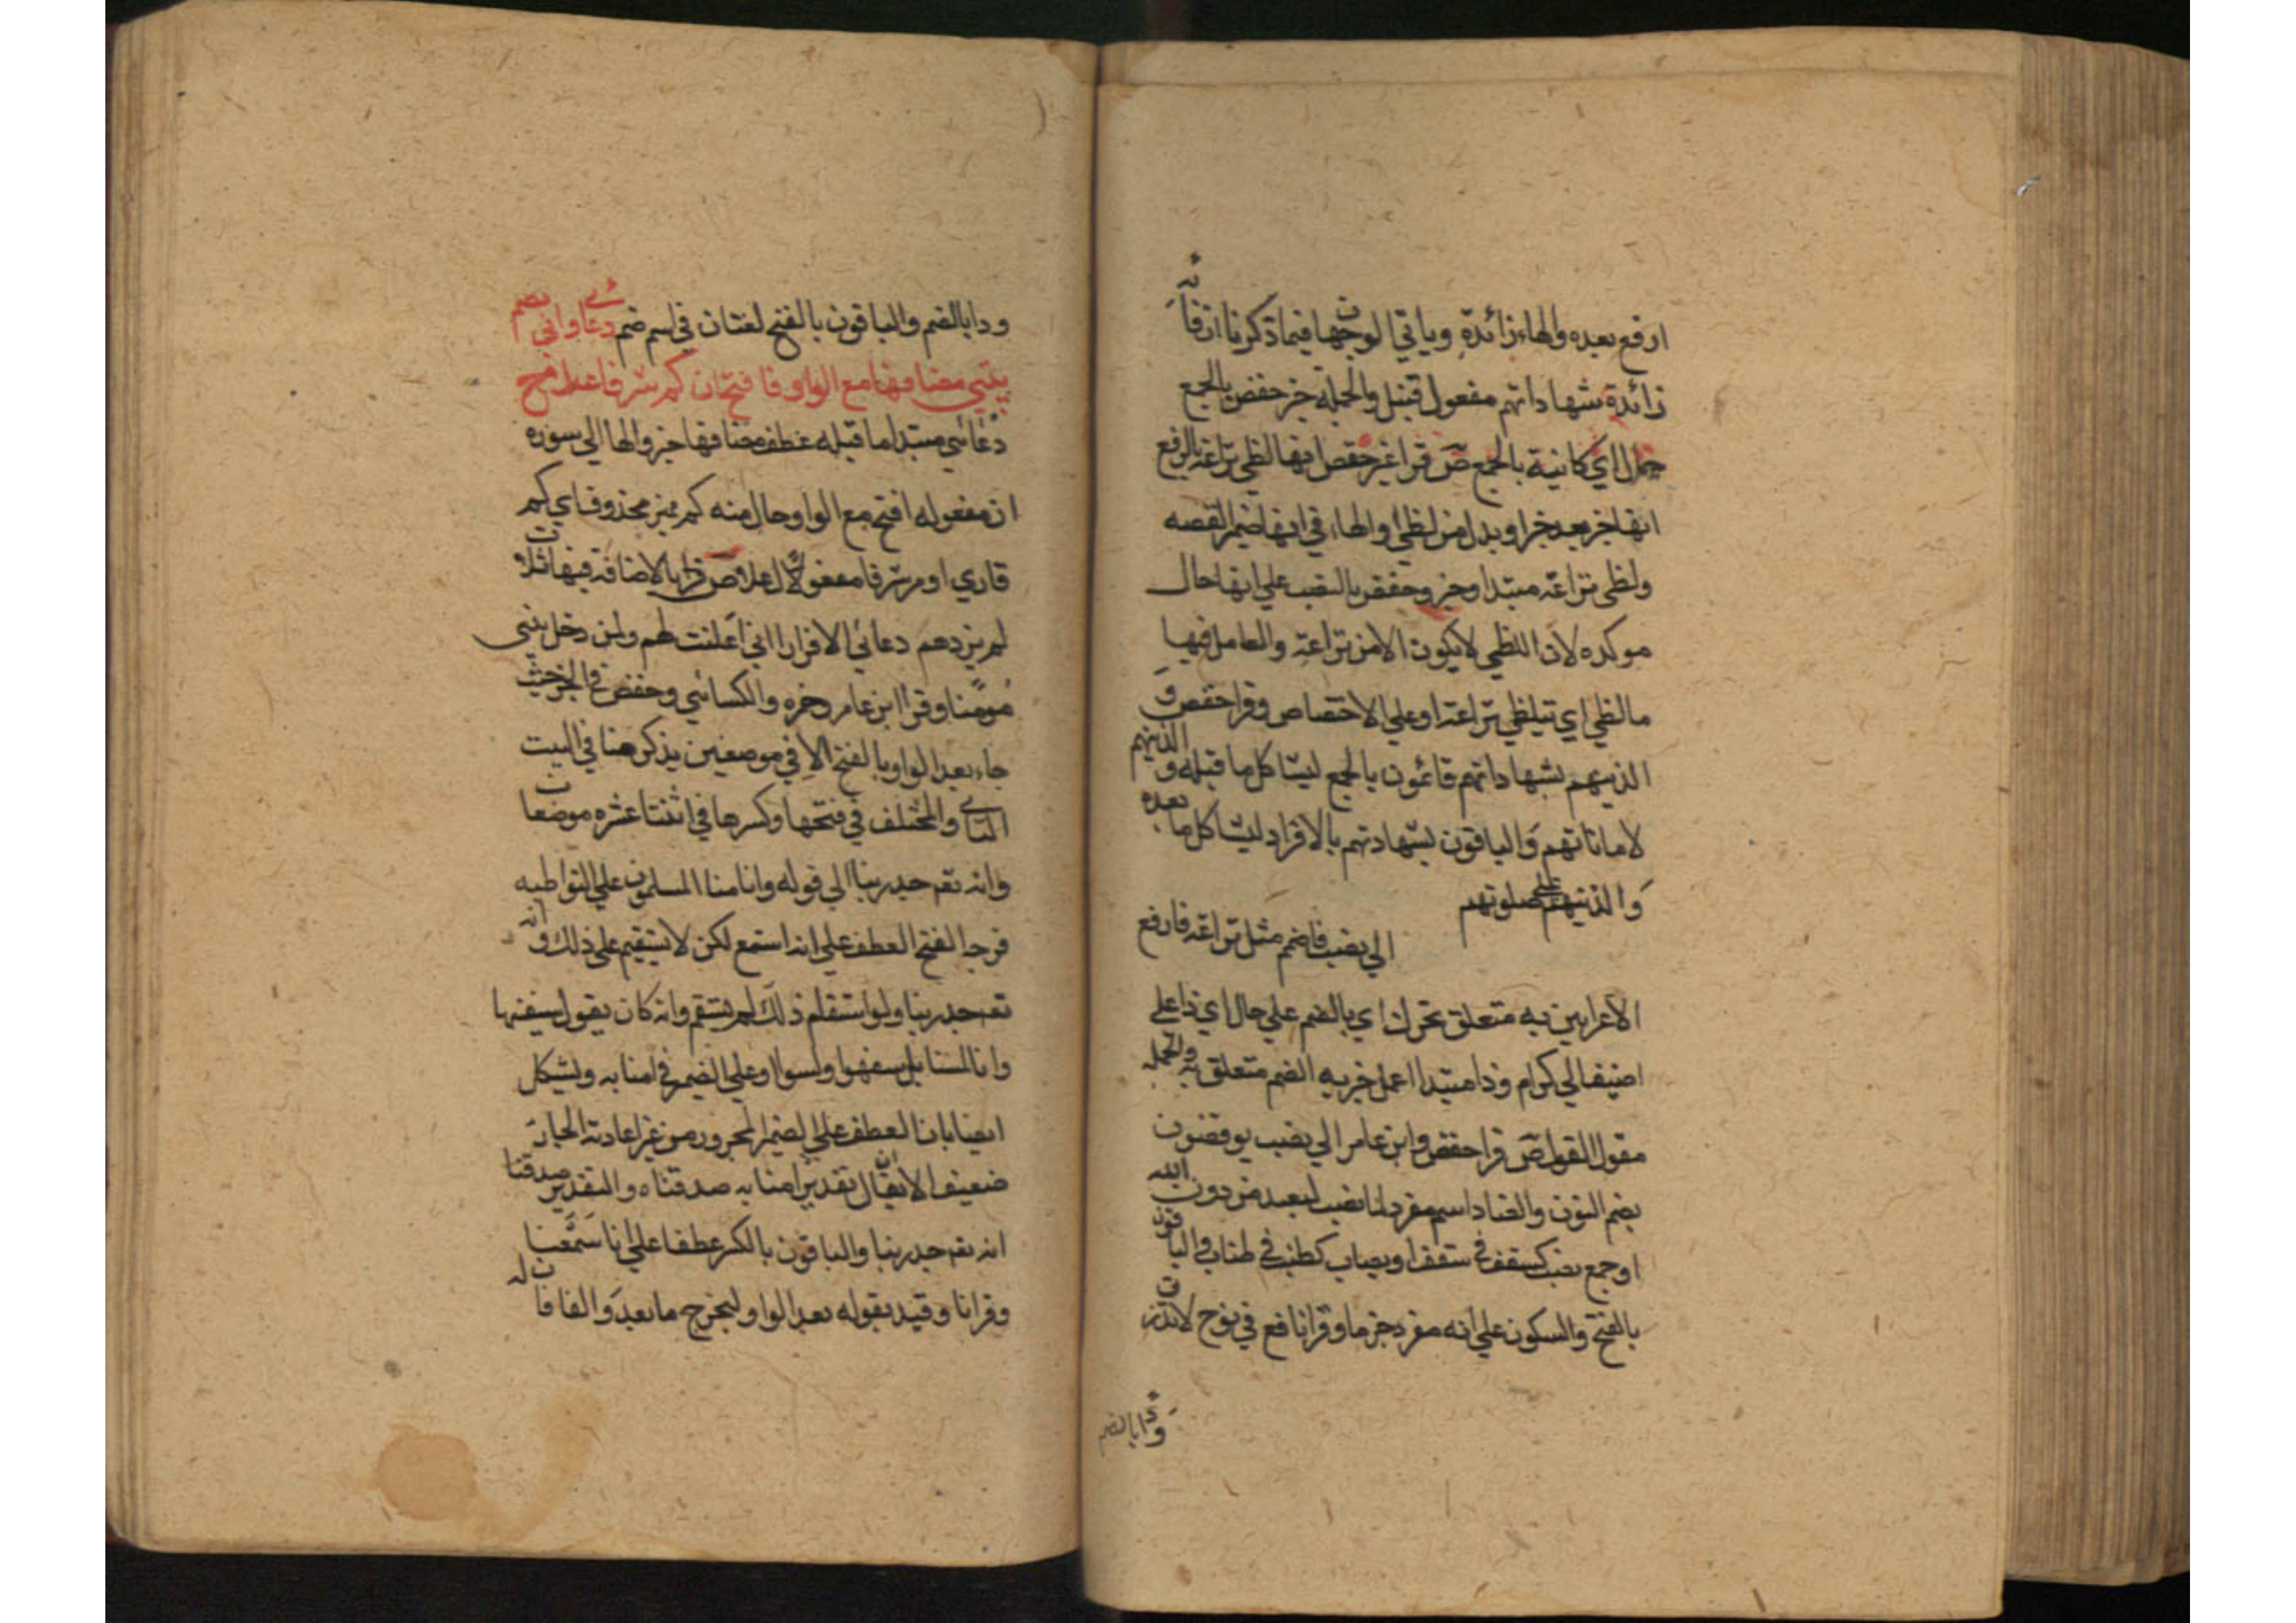 ارفع بعده والهاء زائدة وياتي الوجهان فيما ذكرنا ان فانه
زائدة شهاداتهم مفعول قبل والجملة خبر حفص بالجمع
جملا اي كانية بالجمع ص قرا غير حفص انها لظي نزاعة بالرفع
انها خبر بعد خبر او بدل من لظي او الهاء في انها ضمير القصه
ولظي نزاعة مبتدا وخبر وحفص بالنصب علي انها حال
موكده لان اللظي لا يكون الا من نزاعة والعامل فيها
ما لظي اي تتلظي نزاعة او علي الاختصاص وقرا حفص و
الذينهم بشهاداتهم قائمون بالجمع ليشاكل ما قبله والذينهم
لاماناتهم والباقون بشهادتهم بالافراد ليشاكل ما بعده
والذينهم علي صلوتهم
الي نصب فاضم مثل نزاعة فارفع
الاعرابين به متعلق بحرك اي بالضم علي حال اي ذا علي
اضيف الي كرام وذا مبتدا اعمل خبر به الضم متعلق به والجمله
مقول القول ص قرا حفص وابن عامر الي نصب يوفضون
بضم النون والصاد اسم مفرد لما نصب ليعبد من دون الله
او جمع نصب كسقف في سقف او نصاب كطنب في طناب والباقون
بالفتح والسكون علي انه مفرد جزما وقرا نافع في نوح لا تذرن
ودا بالضم
ودا بالضم والباقون بالفتح لغتان في اسم صنم دعاءي واني بضم
بيتي مضافها مع الواو فافتح ان كم شرفا علا فتح
دعائي مبتدا ما قبله عطف مضافها خبر والها الي سوره
ان مفعوله افتح مع الواو حال منه كم مميز محذوف اي كم
قاري او مر شرفا مفعول لا ل علا ص ذرا بالاضافة فيها ثلاث
لم يزدهم دعائي الا فرارا اني اعلنت لهم ولمن دخل بيتي
مومنا وقرا ابن عامر وحمزه والكسائي وحفص في الجن حيث
جاء بعد الواو بالفتح الا في موضعين يذكر هنا في البيت
التاي والمختلف في فتحها وكسرها في اثنتا عشره موضعا
وانه تعه جد ربنا الي قوله وانا منا المسلمون علي التواطيه
فوجه الفتح العطف علي انه استمع لكن لا يستقيم علي ذلك وانه
تعه جد ربنا ولو استقام ذلك لم يستقم وانه كان يقول سفيهنا
وانا لمسنا بل سفهوا ولسوا او علي الضمير في امنا به ويشكل
ايضا بان العطف علي الضمير المجرور من غير اعادة الجار
ضعيف الا ان يقال تقدير امنا به صدقناه والتقدير صدقنا
انه تعه جد ربنا والباقون بالكسر عطفا علي انا سمعنا
وقرانا وقيد بقوله بعد الواو ليخرج ما بعد والفا فان له